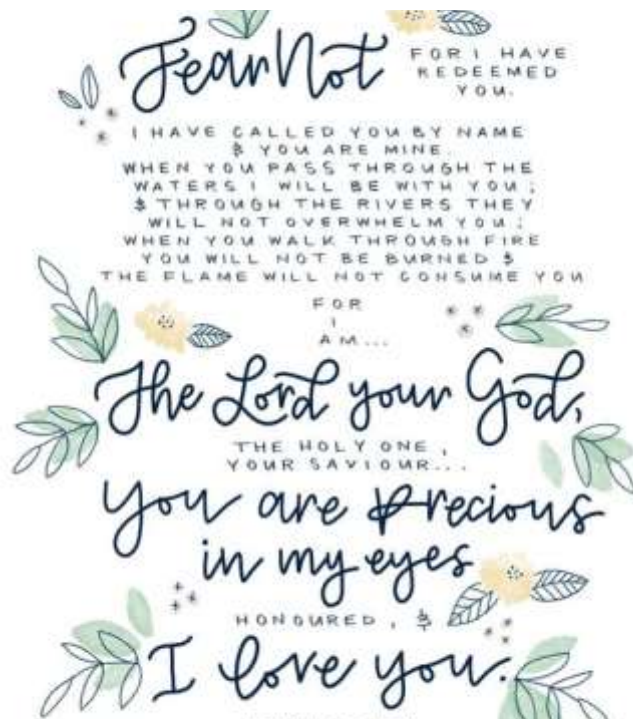 Fear Not
FOR I HAVE
REDEEMED
YOU.
I HAVE CALLED YOU BY NAME
& YOU ARE MINE.
WHEN YOU PASS THROUGH THE
WATERS I WILL BE WITH YOU;
& THROUGH THE RIVERS THEY
WILL NOT OVERWHELM YOU;
WHEN YOU WALK THROUGH FIRE
YOU WILL NOT BE BURNED &
THE FLAME WILL NOT CONSUME YOU
FOR
I
AM...
The Lord your God,
THE HOLY ONE,
YOUR SAVIOUR...
You are precious
in my eyes
HONOURED, &
I love you.